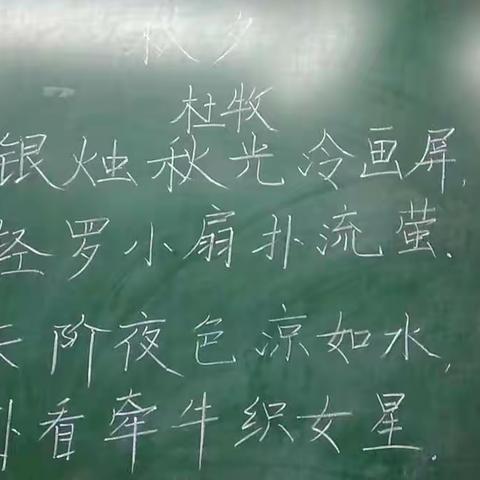 秋夕
杜牧
银烛秋光冷画屏,
轻罗小扇扑流萤.
天阶夜色凉如水,
卧看牵牛织女星.